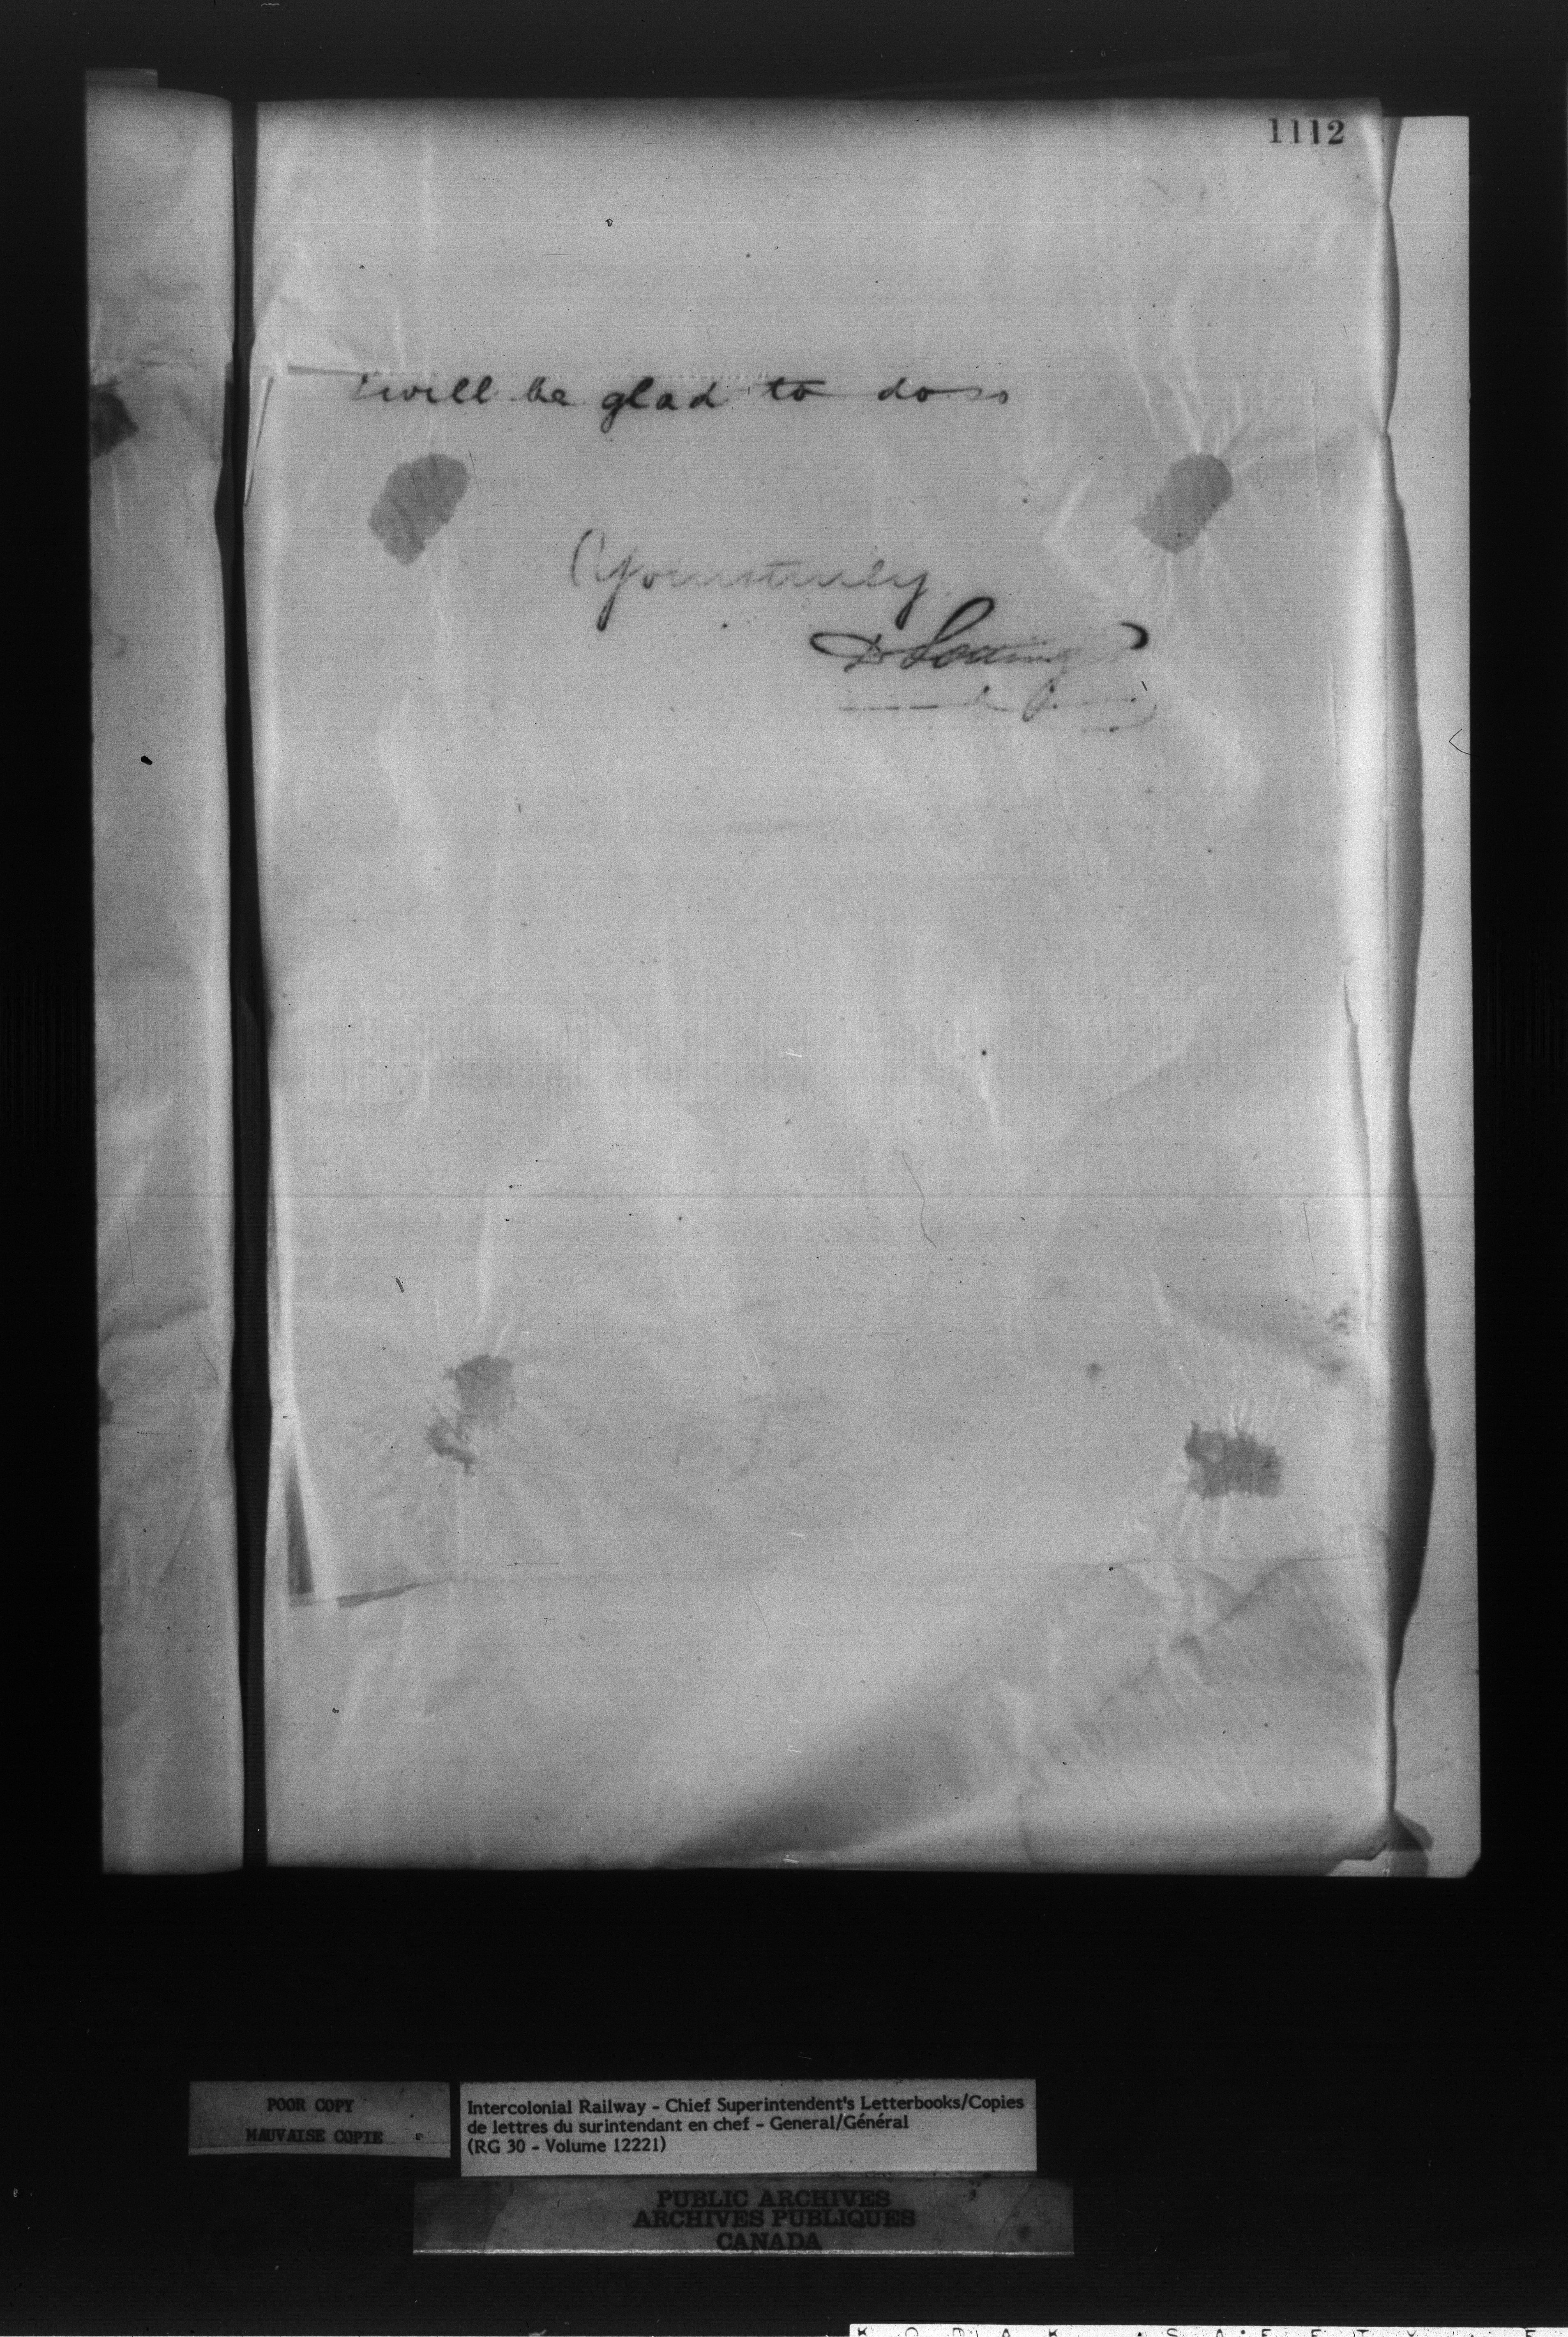 1112
will be glad to do so
Yours truly
D Pottinger
POOR COPY
MAUVAISE COPIE
Intercolonial Railway - Chief Superintendent's Letterbooks/Copies
de lettres du surintendant en chef - General/Général
(RG 30 - Volume 12221)
PUBLIC ARCHIVES
ARCHIVES PUBLIQUES
CANADA
K O D A K S A F E T Y